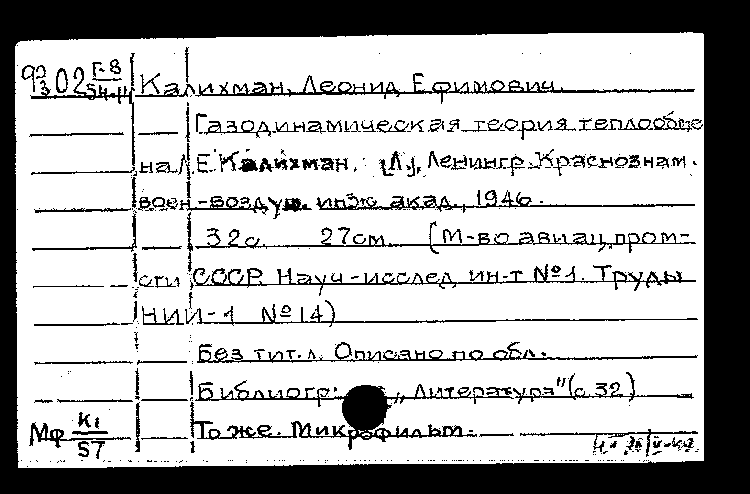 Г-8
9302 54-11 Калихман, Леонид Ефимович.
Газодинамическая теория теплообме
на Л. Е. Калихман. [Л.], Ленингр. Краснознам.
воен-воздуш. инж. акад., 1946.
32с. 27см. (М-во авиац. пром-
сти СССР. Науч-исслед. ин-т №1. Труды
НИИ-1 №14)
Без тит. л. Описано по обл.
Библиогр: „Литература" (с 32)
Мф К1/57 То же. Микрофильм.